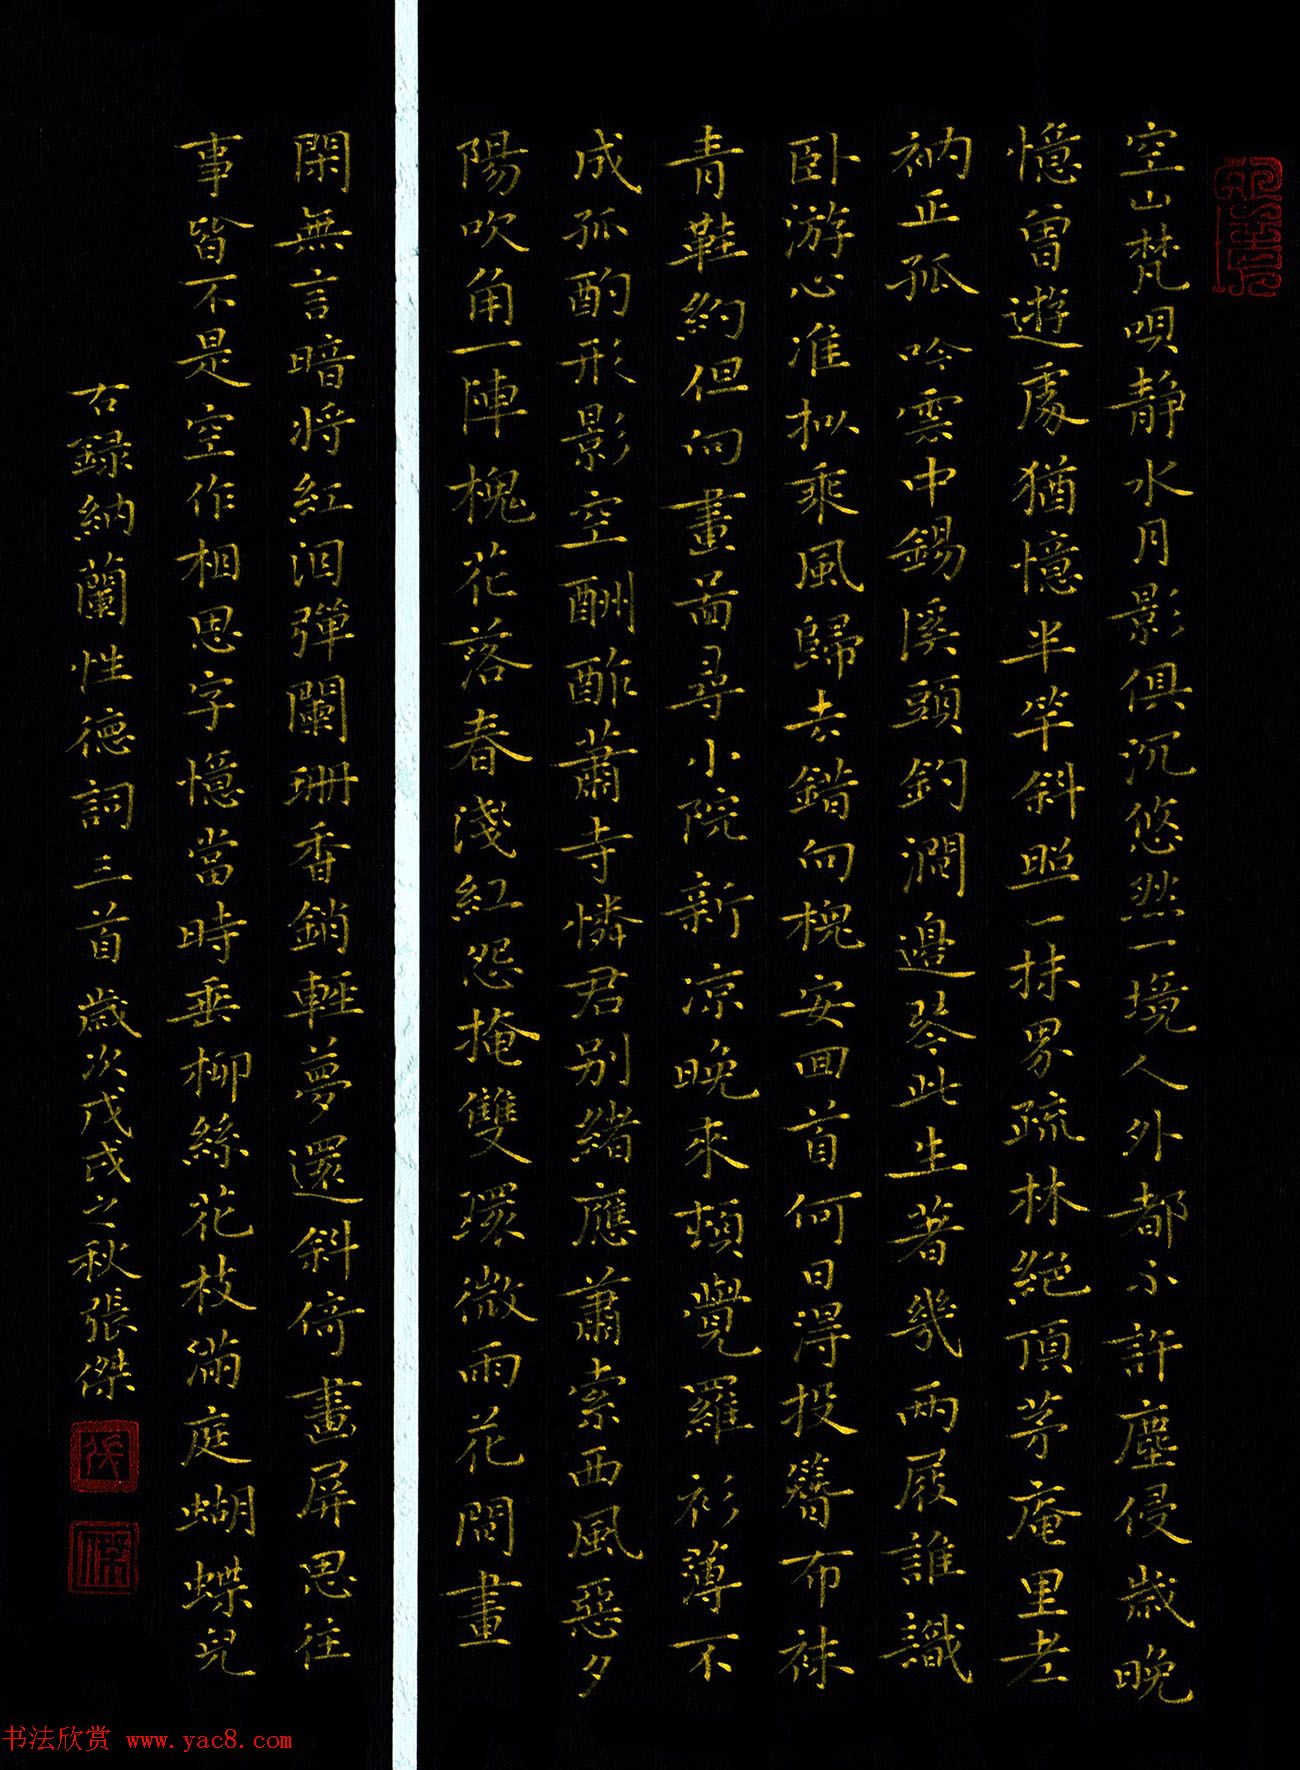 空山梵唄靜水月影俱沉悠然一境人外都不許塵侵歲晚
憶曾遊處猶憶半竿斜照一抹界疏林絕頂茅庵里老
衲正孤吟雲中錫溪頭釣澗邊琴此生著幾兩屐誰識
卧游心准拟乘風歸去錯向槐安回首何日得投簪布袜
青鞋約但向畫啚尋小院新凉晚來頓覺羅衫薄不
成孤酌形影空酬酢蕭寺憐君别緒應蕭索西風惡夕
陽吹角一陣槐花落春淺紅怨掩雙環微雨花間畫
閑無言暗將紅泪彈闌珊香銷輕夢還斜倚畫屏思往
事皆不是空作相思字憶當時垂柳絲花枝滿庭蝴蝶兒
右録納蘭性德詞三首歲次戊戌之秋張傑
傑
书法欣赏 www.yac8.com